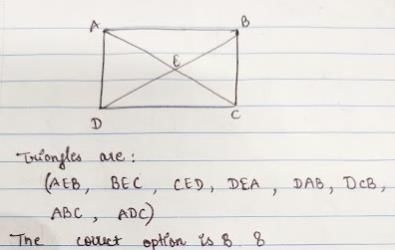 A B
E
D C
Triangles are:
(AEB, BEC, CED, DEA, DAB, DCB,
ABC, ADC)
The correct option is 8 8